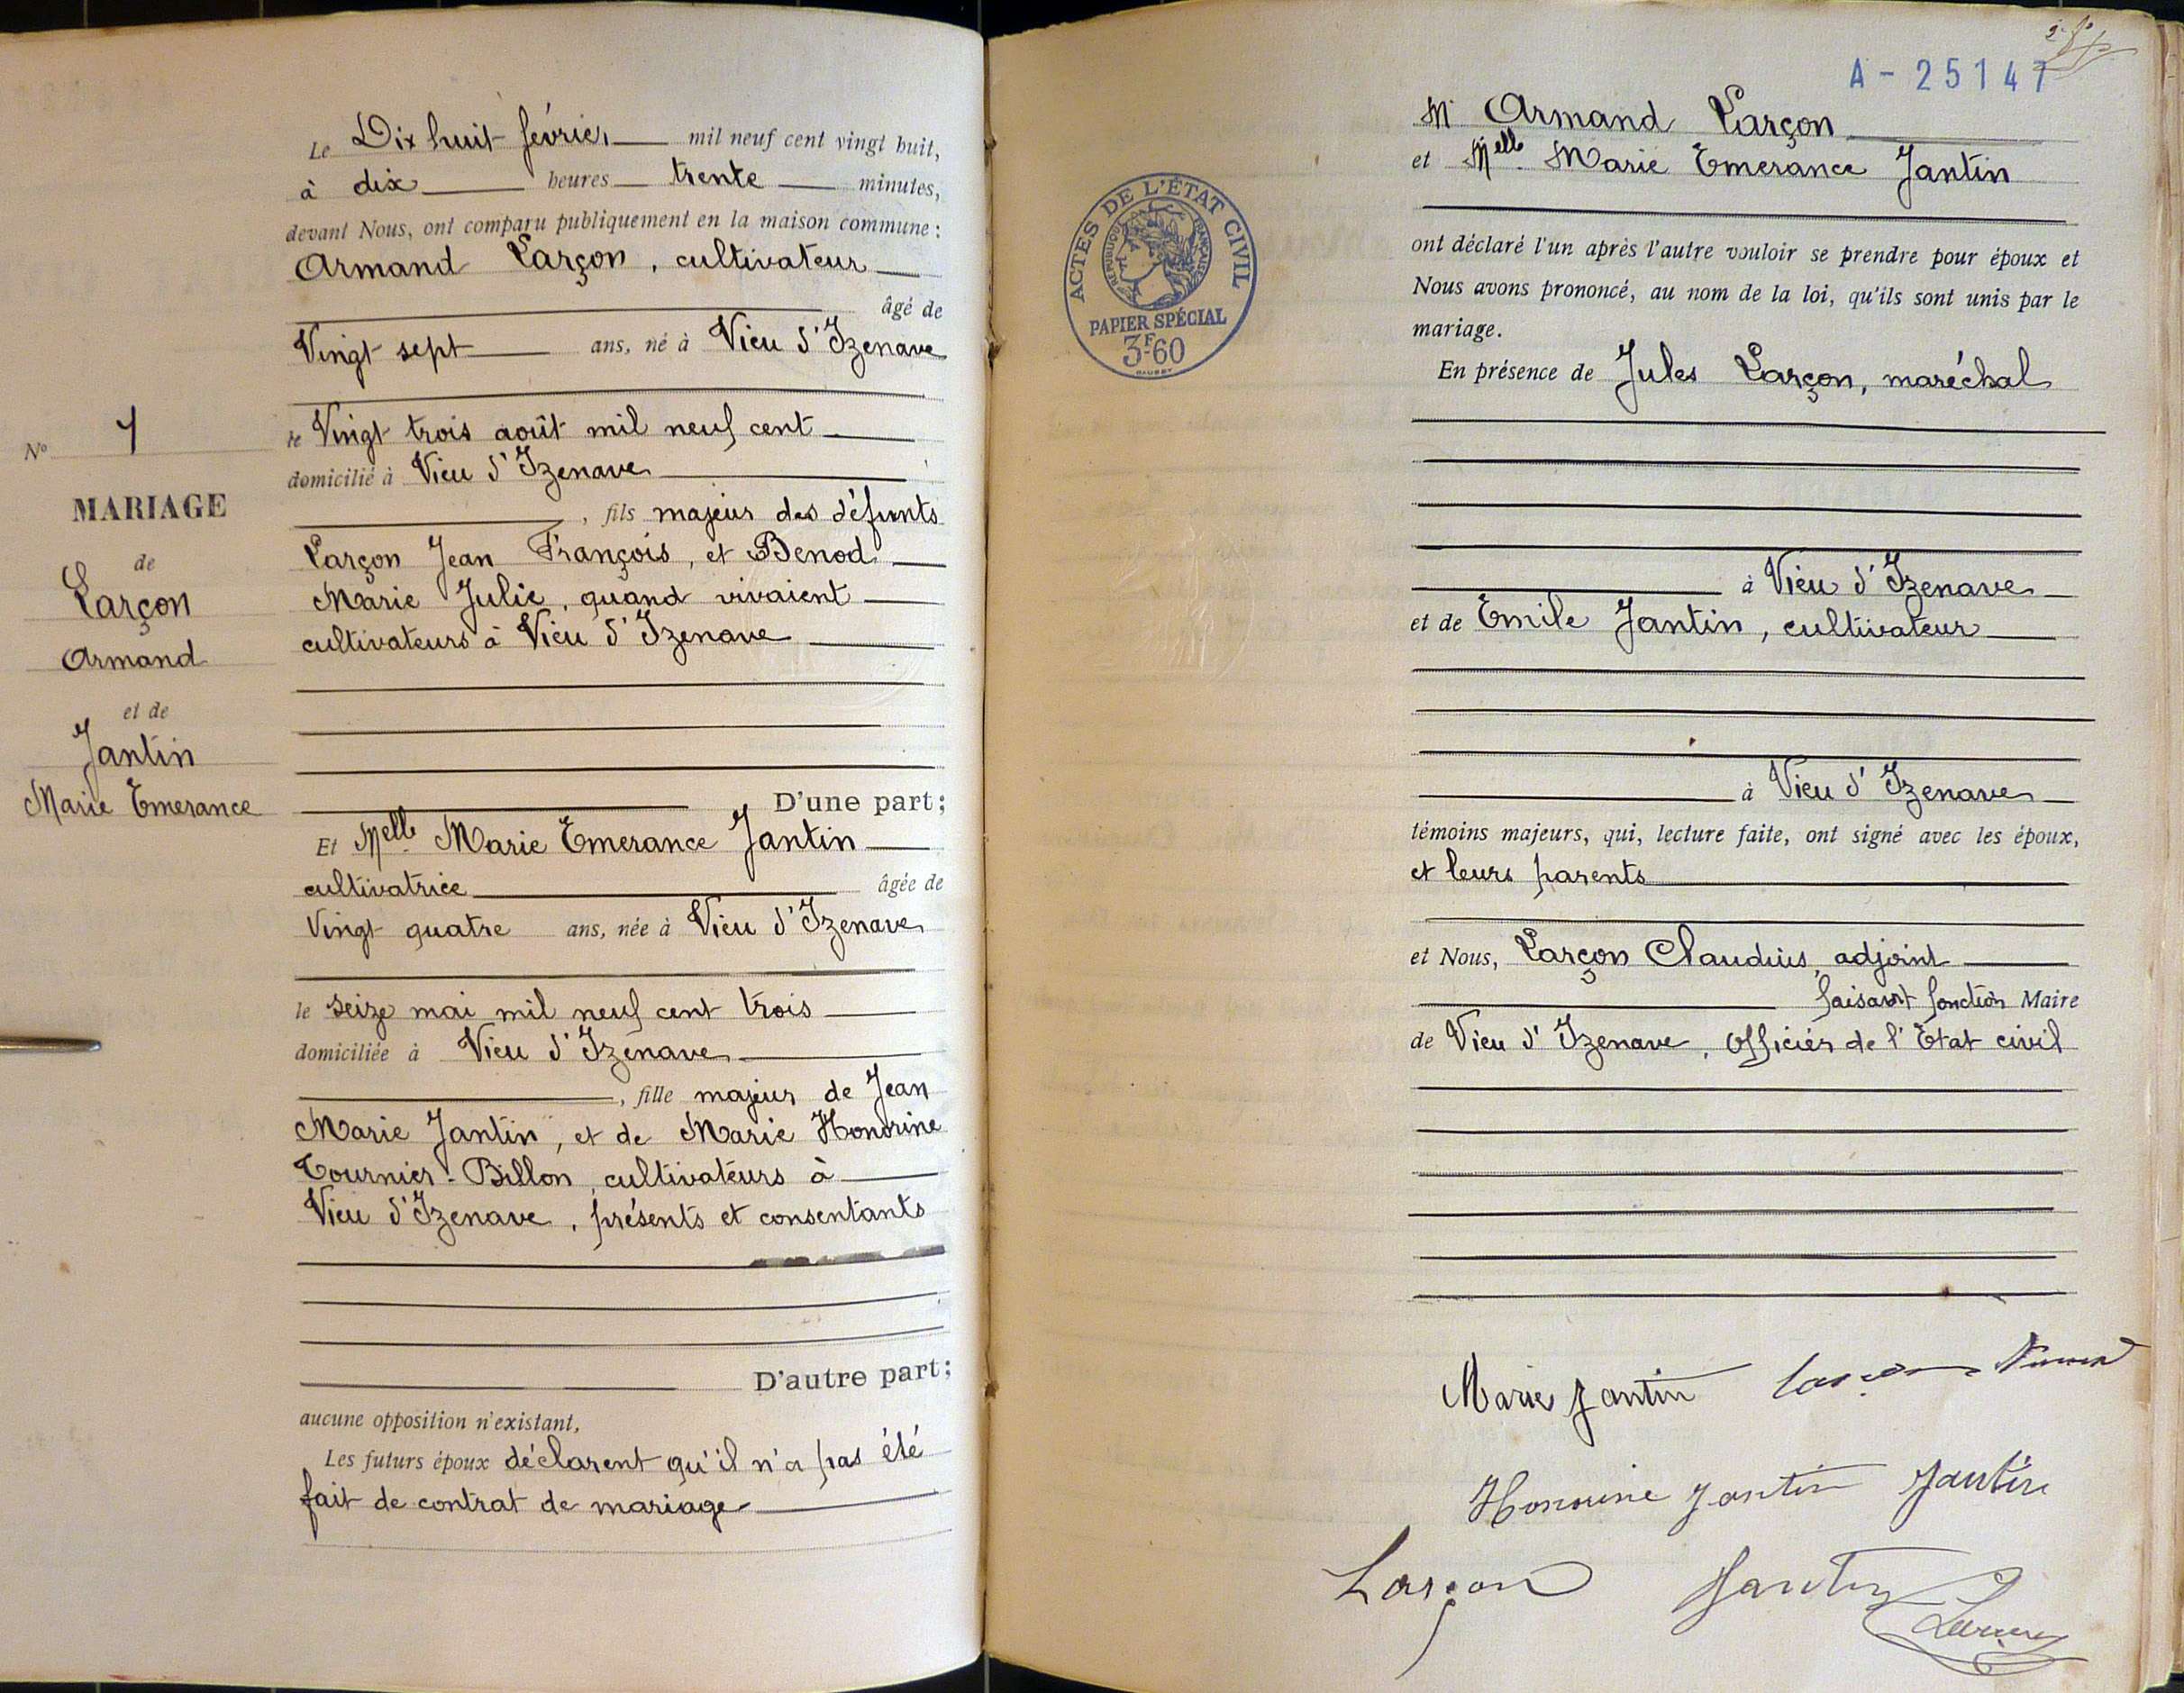 Le Dix huit février mil neuf cent vingt huit,
à dix heures trente minutes,
devant Nous, ont comparu publiquement en la maison commune :
Armand Larçon, cultivateur
âgé de
Vingt sept ans, né à Vieu d'Izenave
le Vingt trois août mil neuf cent
domicilié à Vieu d'Izenave
, fils majeur des défunts
Larçon Jean François, et Benod
Marie Julie, quand vivaient
cultivateurs à Vieu d'Izenave
D'une part ;
Et Melle Marie Emerance Jantin
cultivatrice âgée de
Vingt quatre ans, née à Vieu d'Izenave
le seize mai mil neuf cent trois
domiciliée à Vieu d'Izenave
, fille majeur de Jean
Marie Jantin, et de Marie Honorine
Tournier-Billon, cultivateurs à
Vieu d'Izenave, présents et consentants
D'autre part ;
aucune opposition n'existant,
Les futurs époux déclarent qu'il n'a pas été
fait de contrat de mariage
No 1
MARIAGE
de
Larçon
Armand
et de
Jantin
Marie Emerance
A - 25147
ACTES DE L'ÉTAT CIVIL
RÉPUBLIQUE FRANÇAISE
PAPIER SPÉCIAL
3F60
M Armand Larçon
et Melle Marie Emerance Jantin
ont déclaré l'un après l'autre vouloir se prendre pour époux et
Nous avons prononcé, au nom de la loi, qu'ils sont unis par le
mariage.
En présence de Jules Larçon, maréchal
à Vieu d'Izenave
et de Emile Jantin, cultivateur
à Vieu d'Izenave
témoins majeurs, qui, lecture faite, ont signé avec les époux,
et leurs parents
et Nous, Larçon Claudius, adjoint
faisant fonction Maire
de Vieu d'Izenave, Officier de l'Etat civil
Marie Jantin Larçon
Honorine Jantin Jantin
Larçon Jantin